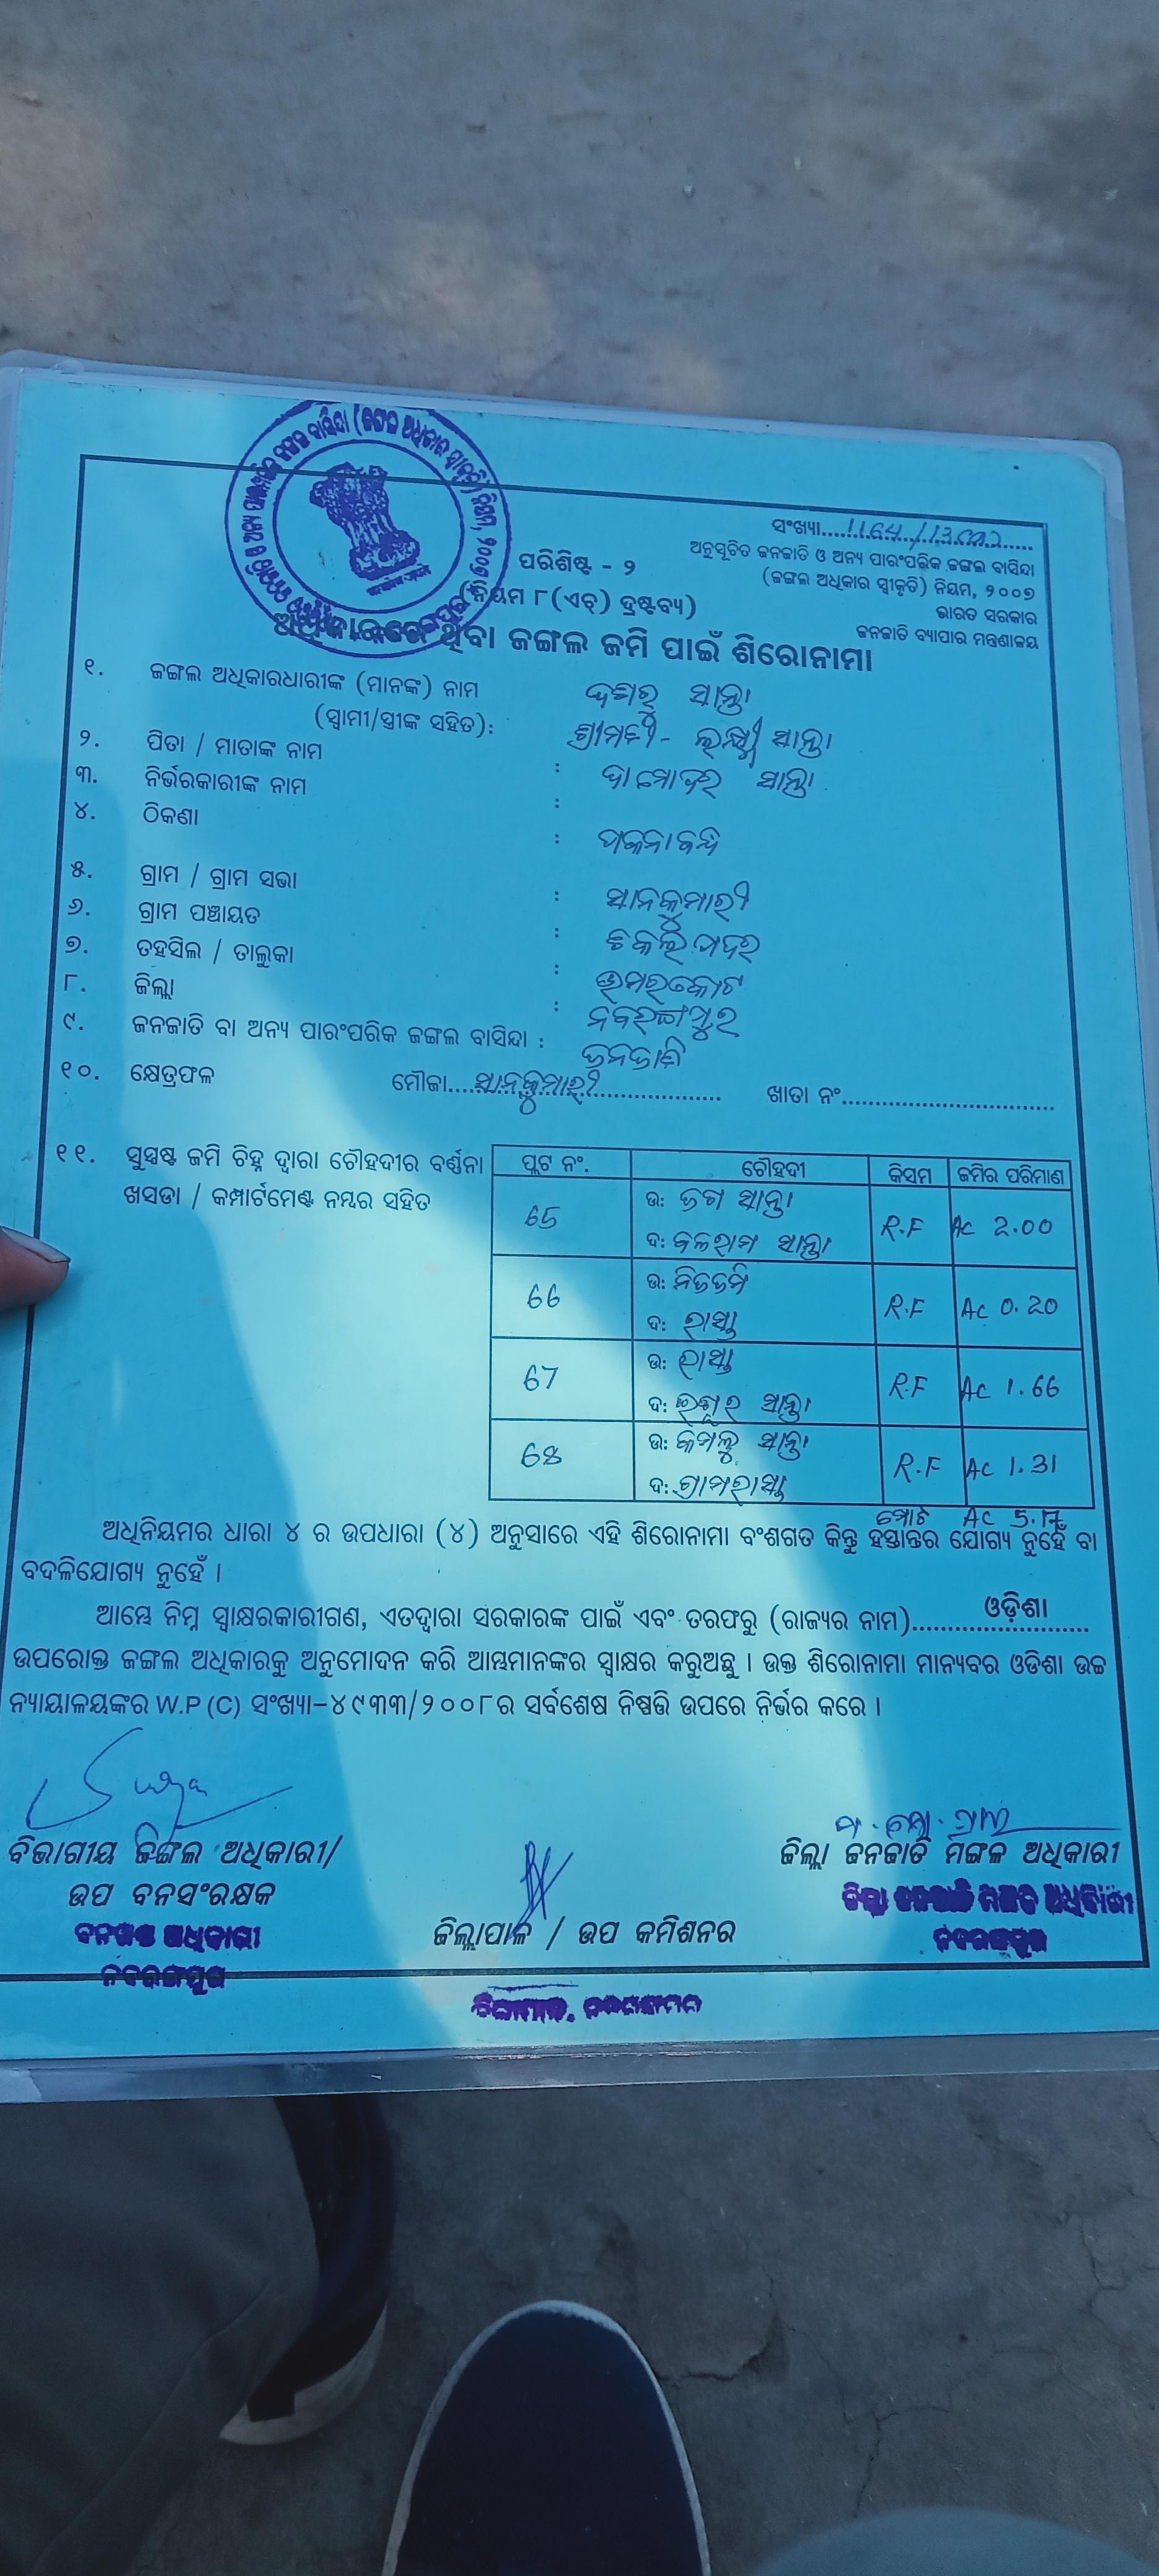 ସଂଖ୍ୟା....1164/13.......
ଅନୁସୂଚିତ ଜନଜାତି ଓ ଅନ୍ୟ ପାରଂପରିକ ଜଙ୍ଗଲ ବାସିନ୍ଦା
(ଜଙ୍ଗଲ ଅଧିକାର ସ୍ୱୀକୃତି) ନିୟମ, ୨୦୦୭
ଭାରତ ସରକାର
ଜନଜାତି ବ୍ୟାପାର ମନ୍ତ୍ରଣାଳୟ
ପରିଶିଷ୍ଟ - ୨
(ନିୟମ ୮(ଏଚ୍) ଦ୍ରଷ୍ଟବ୍ୟ)
ଥିବା ଜଙ୍ଗଲ ଜମି ପାଇଁ ଶିରୋନାମା
୧. ଜଙ୍ଗଲ ଅଧିକାରଧାରୀଙ୍କ (ମାନଙ୍କ) ନାମ ଦଶରୁ ସାନ୍ତା
(ସ୍ୱାମୀ/ସ୍ତ୍ରୀଙ୍କ ସହିତ): ଶ୍ରୀମତୀ- ଲକ୍ଷ୍ମୀ ସାନ୍ତା
୨. ପିତା / ମାତାଙ୍କ ନାମ : ଦାମୋଦର ସାନ୍ତା
୩. ନିର୍ଭରକାରୀଙ୍କ ନାମ :
୪. ଠିକଣା :
୫. ଗ୍ରାମ / ଗ୍ରାମ ସଭା : ସାନକୁମାରୀ
୬. ଗ୍ରାମ ପଞ୍ଚାୟତ :
୭. ତହସିଲ / ତାଲୁକା : ଉମରକୋଟ
୮. ଜିଲ୍ଲା : ନବରଙ୍ଗପୁର
୯. ଜନଜାତି ବା ଅନ୍ୟ ପାରଂପରିକ ଜଙ୍ଗଲ ବାସିନ୍ଦା : ଜନଜାତି
୧୦. କ୍ଷେତ୍ରଫଳ ମୌଜା....ସାନକୁମାରୀ.................... ଖାତା ନଂ................................
୧୧. ସୁସ୍ପଷ୍ଟ ଜମି ଚିହ୍ନ ଦ୍ୱାରା ଚୌହଦୀର ବର୍ଣ୍ଣନା
ଖସଡା / କମ୍ପାର୍ଟମେଣ୍ଟ ନମ୍ବର ସହିତ
ପ୍ଲଟ ନଂ. ଚୌହଦୀ କିସମ ଜମିର ପରିମାଣ
65 ଉ: ସାନ୍ତା R.F Ac 2.00
ଦ: ବଳରାମ ସାନ୍ତା
66 ଉ: ନିଜଜମି R.F Ac 0.20
ଦ: ରାସ୍ତା
67 ଉ: ରାସ୍ତା R.F Ac 1.66
ଦ: ଈଶ୍ୱର ସାନ୍ତା
68 ଉ: କମଳୁ ସାନ୍ତା R.F Ac 1.31
ଦ: ଗ୍ରାମରାସ୍ତା
ମୋଟ Ac 5.17
ଅଧିନିୟମର ଧାରା ୪ ର ଉପଧାରା (୪) ଅନୁସାରେ ଏହି ଶିରୋନାମା ବଂଶଗତ କିନ୍ତୁ ହସ୍ତାନ୍ତର ଯୋଗ୍ୟ ନୁହେଁ ବା
ବଦଳିଯୋଗ୍ୟ ନୁହେଁ ।
ଆମ୍ଭେ ନିମ୍ନ ସ୍ୱାକ୍ଷରକାରୀଗଣ, ଏତଦ୍ୱାରା ସରକାରଙ୍କ ପାଇଁ ଏବଂ ତରଫରୁ (ରାଜ୍ୟର ନାମ)..........ଓଡ଼ିଶା..........
ଉପରୋକ୍ତ ଜଙ୍ଗଲ ଅଧିକାରକୁ ଅନୁମୋଦନ କରି ଆମ୍ଭମାନଙ୍କର ସ୍ୱାକ୍ଷର କରୁଅଛୁ । ଉକ୍ତ ଶିରୋନାମା ମାନ୍ୟବର ଓଡିଶା ଉଚ୍ଚ
ନ୍ୟାୟାଳୟଙ୍କର W.P (C) ସଂଖ୍ୟା-୪୯୩୩/୨୦୦୮ର ସର୍ବଶେଷ ନିଷ୍ପତ୍ତି ଉପରେ ନିର୍ଭର କରେ ।
ବିଭାଗୀୟ ଜଙ୍ଗଲ ଅଧିକାରୀ/
ଉପ ବନସଂରକ୍ଷକ
ବନଖଣ୍ଡ ଅଧିକାରୀ
ନବରଙ୍ଗପୁର
ଜିଲ୍ଲାପାଳ / ଉପ କମିଶନର
ଜିଲ୍ଲାପାଳ, ନବରଙ୍ଗପୁର
ଜିଲ୍ଲା ଜନଜାତି ମଙ୍ଗଳ ଅଧିକାରୀ
ଜିଲ୍ଲା ଜନଜାତି ମଙ୍ଗଳ ଅଧିକାରୀ
ନବରଙ୍ଗପୁର